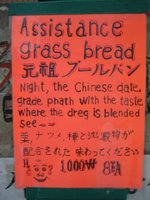 Assistance
grass bread
元祖 プールパン
Night, the Chinese date,
grade phath with the taste
where the dreg is blended
see——
栗、ナツメ、棒と沈澱物が
配合された 味わってください
!! 1,000₩ 8EA